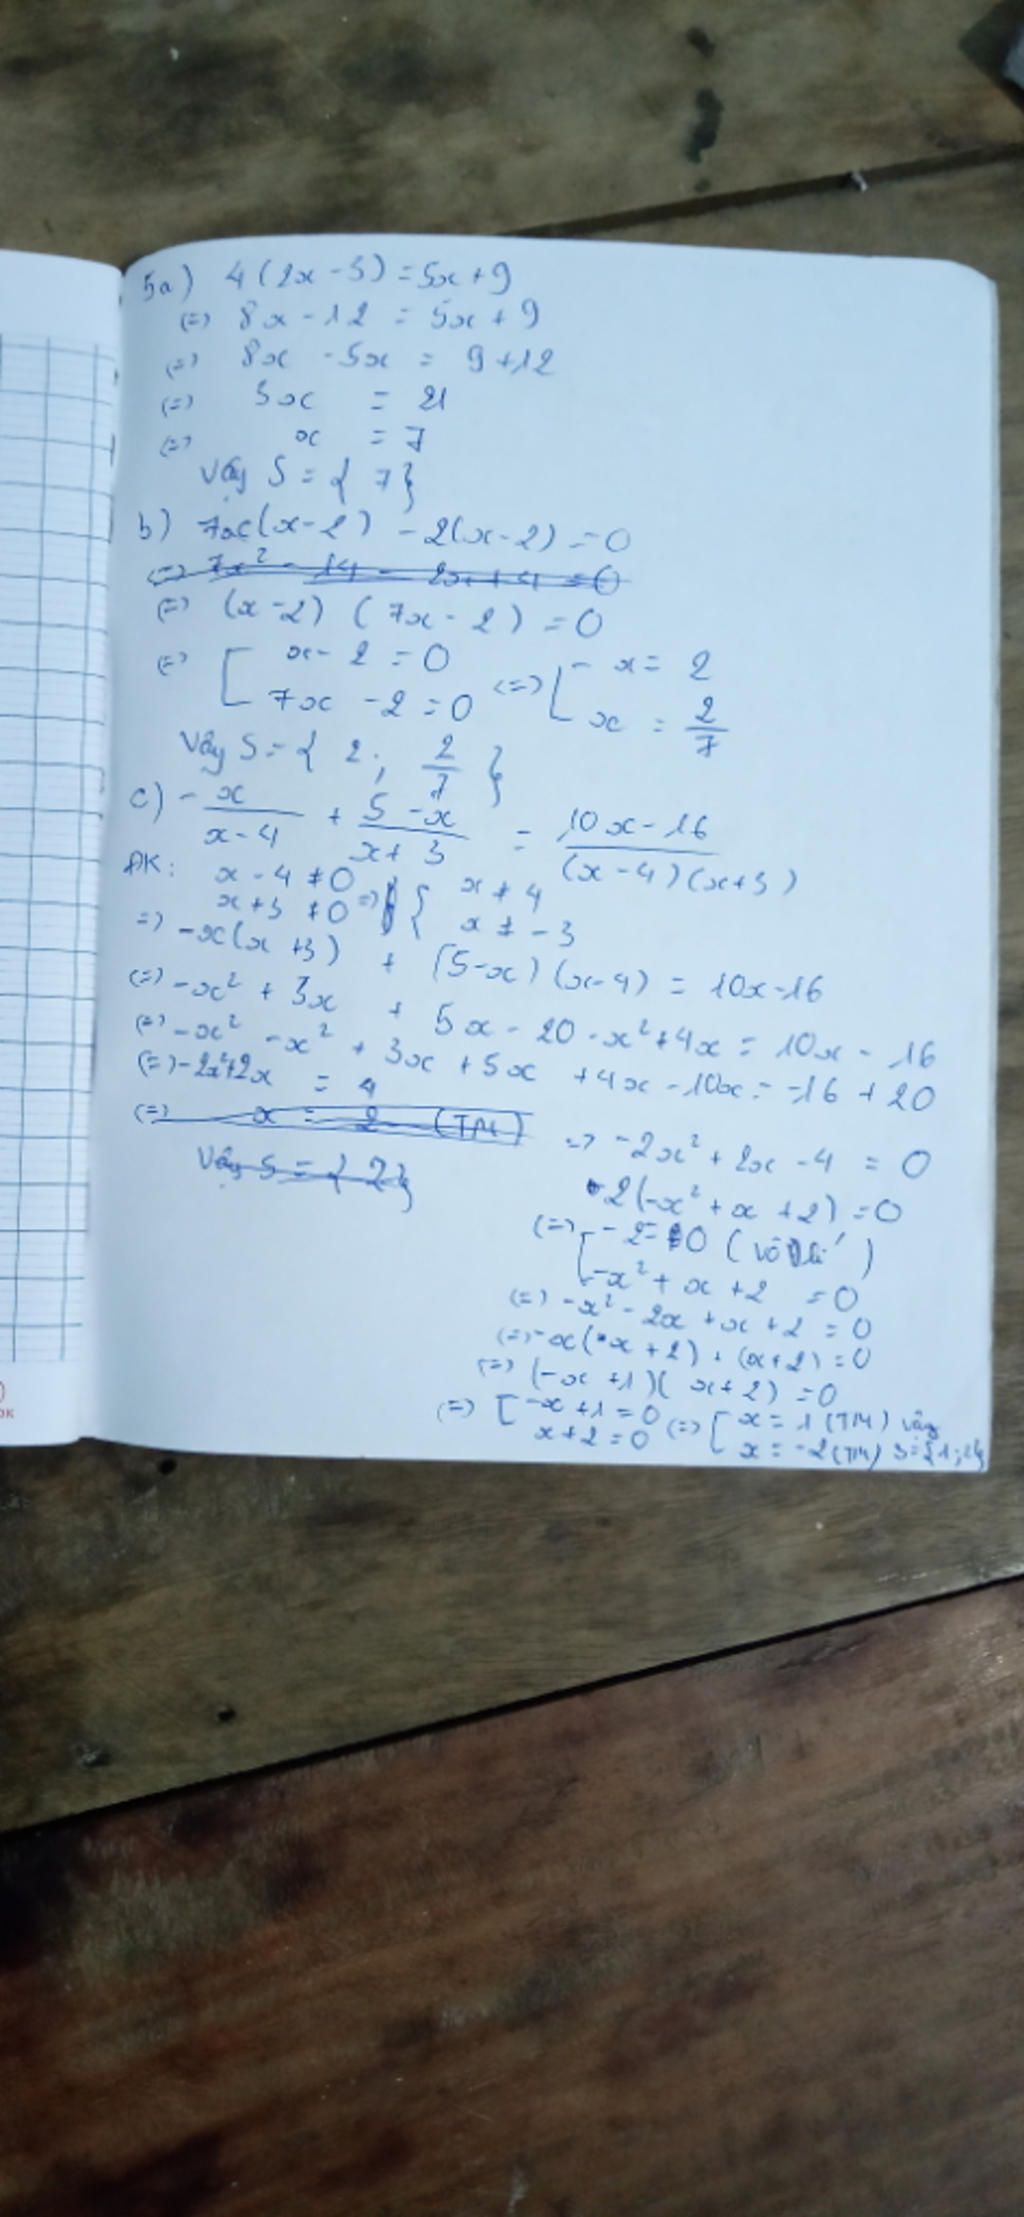 5a) 4(2x-3)=5x+9
(=) 8x-12 = 5x+9
(=) 8x -5x = 9+12
(=) 3x = 21
(=) x = 7
Vậy S = { 7}
b) 7x(x-2) -2(x-2)=0
(=) 7x² - 14 - 2x+4 =0
(=) (x-2) (7x-2) =0
(=) [ x-2 =0 (=) [ - x= 2
7x -2=0 x = 2/7
Vậy S={ 2; 2/7 }
c) -x/(x-4) + (5-x)/(x+3) = (10x-16)/((x-4)(x+3))
ĐK: x-4 ≠0 => { x ≠ 4
x+3 ≠0 x ≠ -3
=) -x(x+3) + (5-x)(x-4) = 10x-16
(=) -x² + 3x + 5x - 20 - x²+4x = 10x - 16
(=) -x² -x² + 3x +5x +4x -10x = -16 +20
(=) -2x²+2x = 4
(=) x = 2 (TM)
Vậy S = { 2}
=) -2x² + 2x -4 = 0
2(-x² + x +2) =0
(=) [ - 2= 0 (vô lí)
-x² + x +2 =0
(=) -x² - 2x +x +2 =0
(=) -x(x+2) + (x+2) =0
(=) (-x +1)( x+2) =0
(=) [ -x +1 =0 (=) [ x = 1 (TM) vậy
x+2 =0 x = -2 (TM)